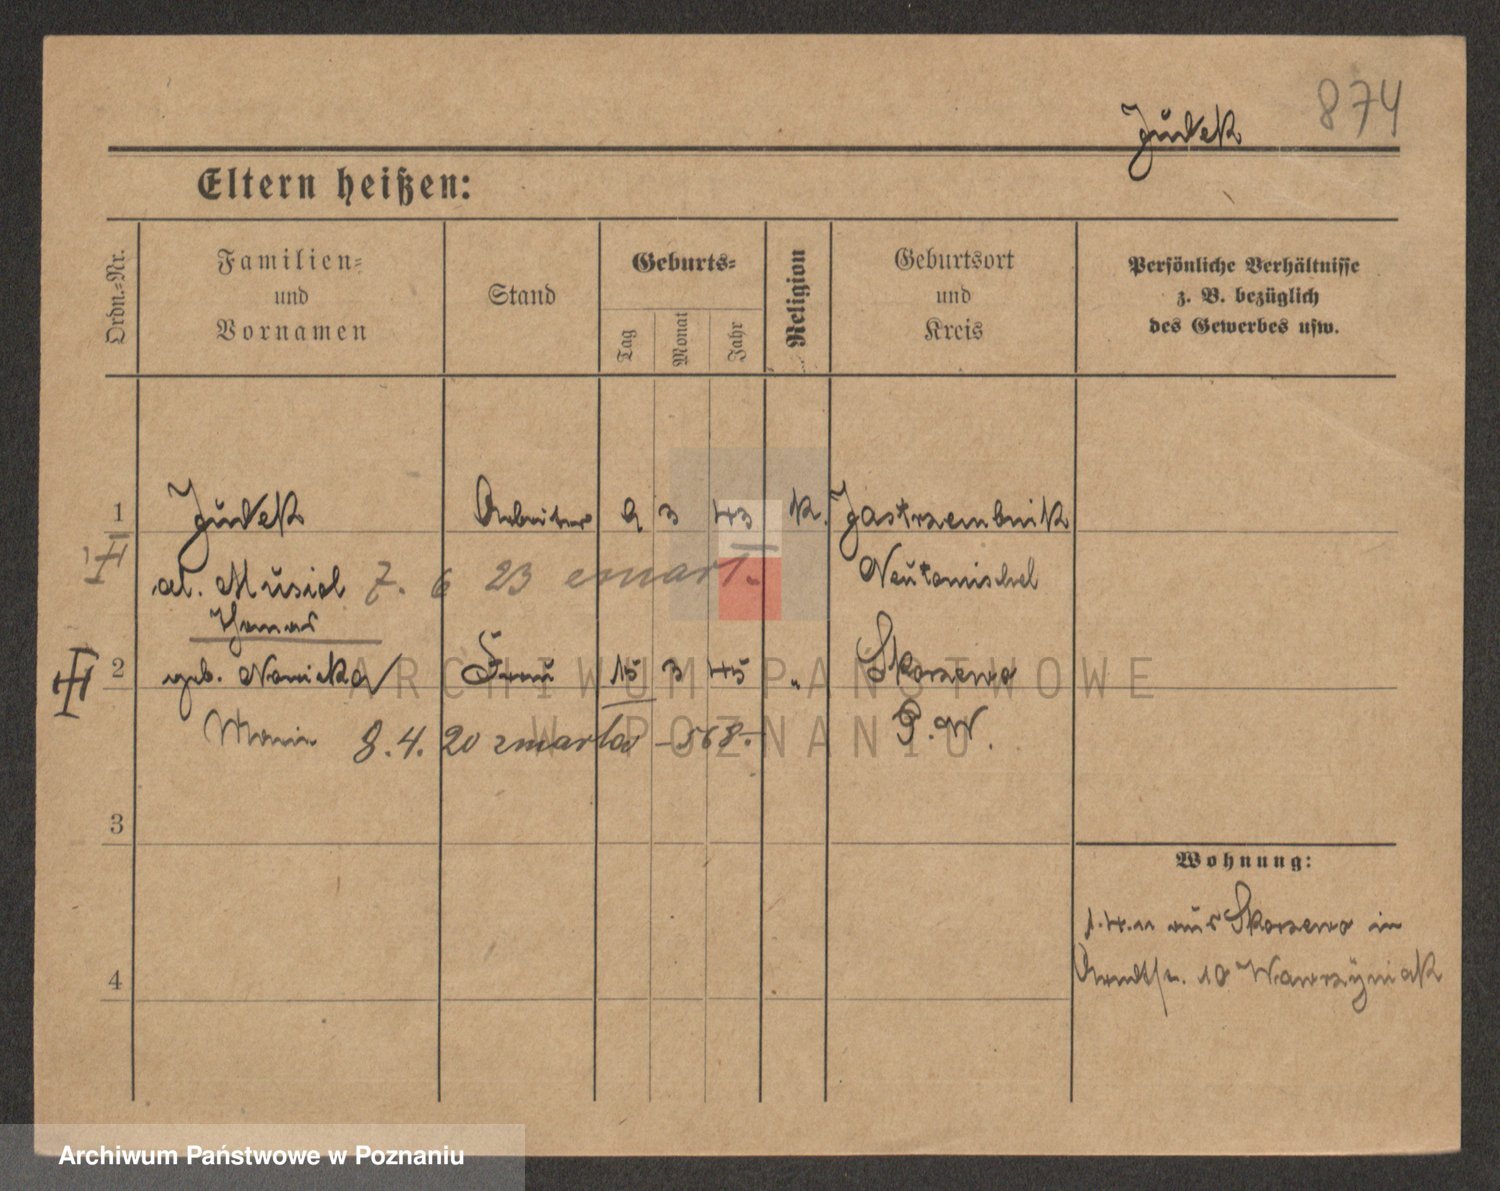 874
Judek
Eltern heißen:
Ordn.-Nr.
Familien-
und
Vornamen
Stand
Geburts-
Tag
Monat
Jahr
Religion
Geburtsort
und
Kreis
Persönliche Verhältnisse
z. B. bezüglich
des Gewerbes usw.
1 Judek Arbeiter 9 3 43 k. Jastrzembnik
al. Musial 7. 6 23 zmarł. Neutomischel
Thomas
2 geb. Nowicka Frau 15 3 45 " Skorzewo
Marie 8.4.20 zmarła -568.- P.W.
3
Wohnung:
1.4.11 aus Skorzewo in
4
Arndtstr. 10 Wawrzyniak
ARCHIWUM PAŃSTWOWE
W POZNANIU
Archiwum Państwowe w Poznaniu